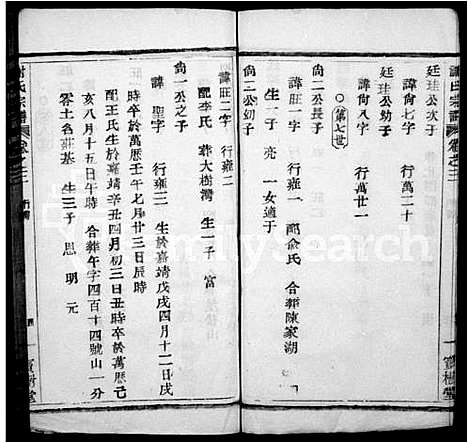 謝氏宗譜 卷之三
廷珪公次子
諱尚七字 行萬二十
廷珪公幼子
諱尚八字 行萬廿一
第七世
尚二公長子
諱旺一字 行雍一 配俞氏 合葬陳家湖
生一子 亮 一女適于
尚二公幼子
寶樹堂
諱旺二字 行雍二
配李氏 葬大樹灣 生一子 富
尚一公之子
諱聖字 行 生於嘉靖戊戌四月十二日戌
時卒於萬歷壬午七月廿三日辰時
配王氏生於嘉靖辛丑四月初三日丑時卒於萬歷己
亥八月十五日午時 合葬午字四百十四號山一分
零土名莊基 生三子 思 明 元
謝氏宗譜 卷之三
寶樹堂
FamilySearch